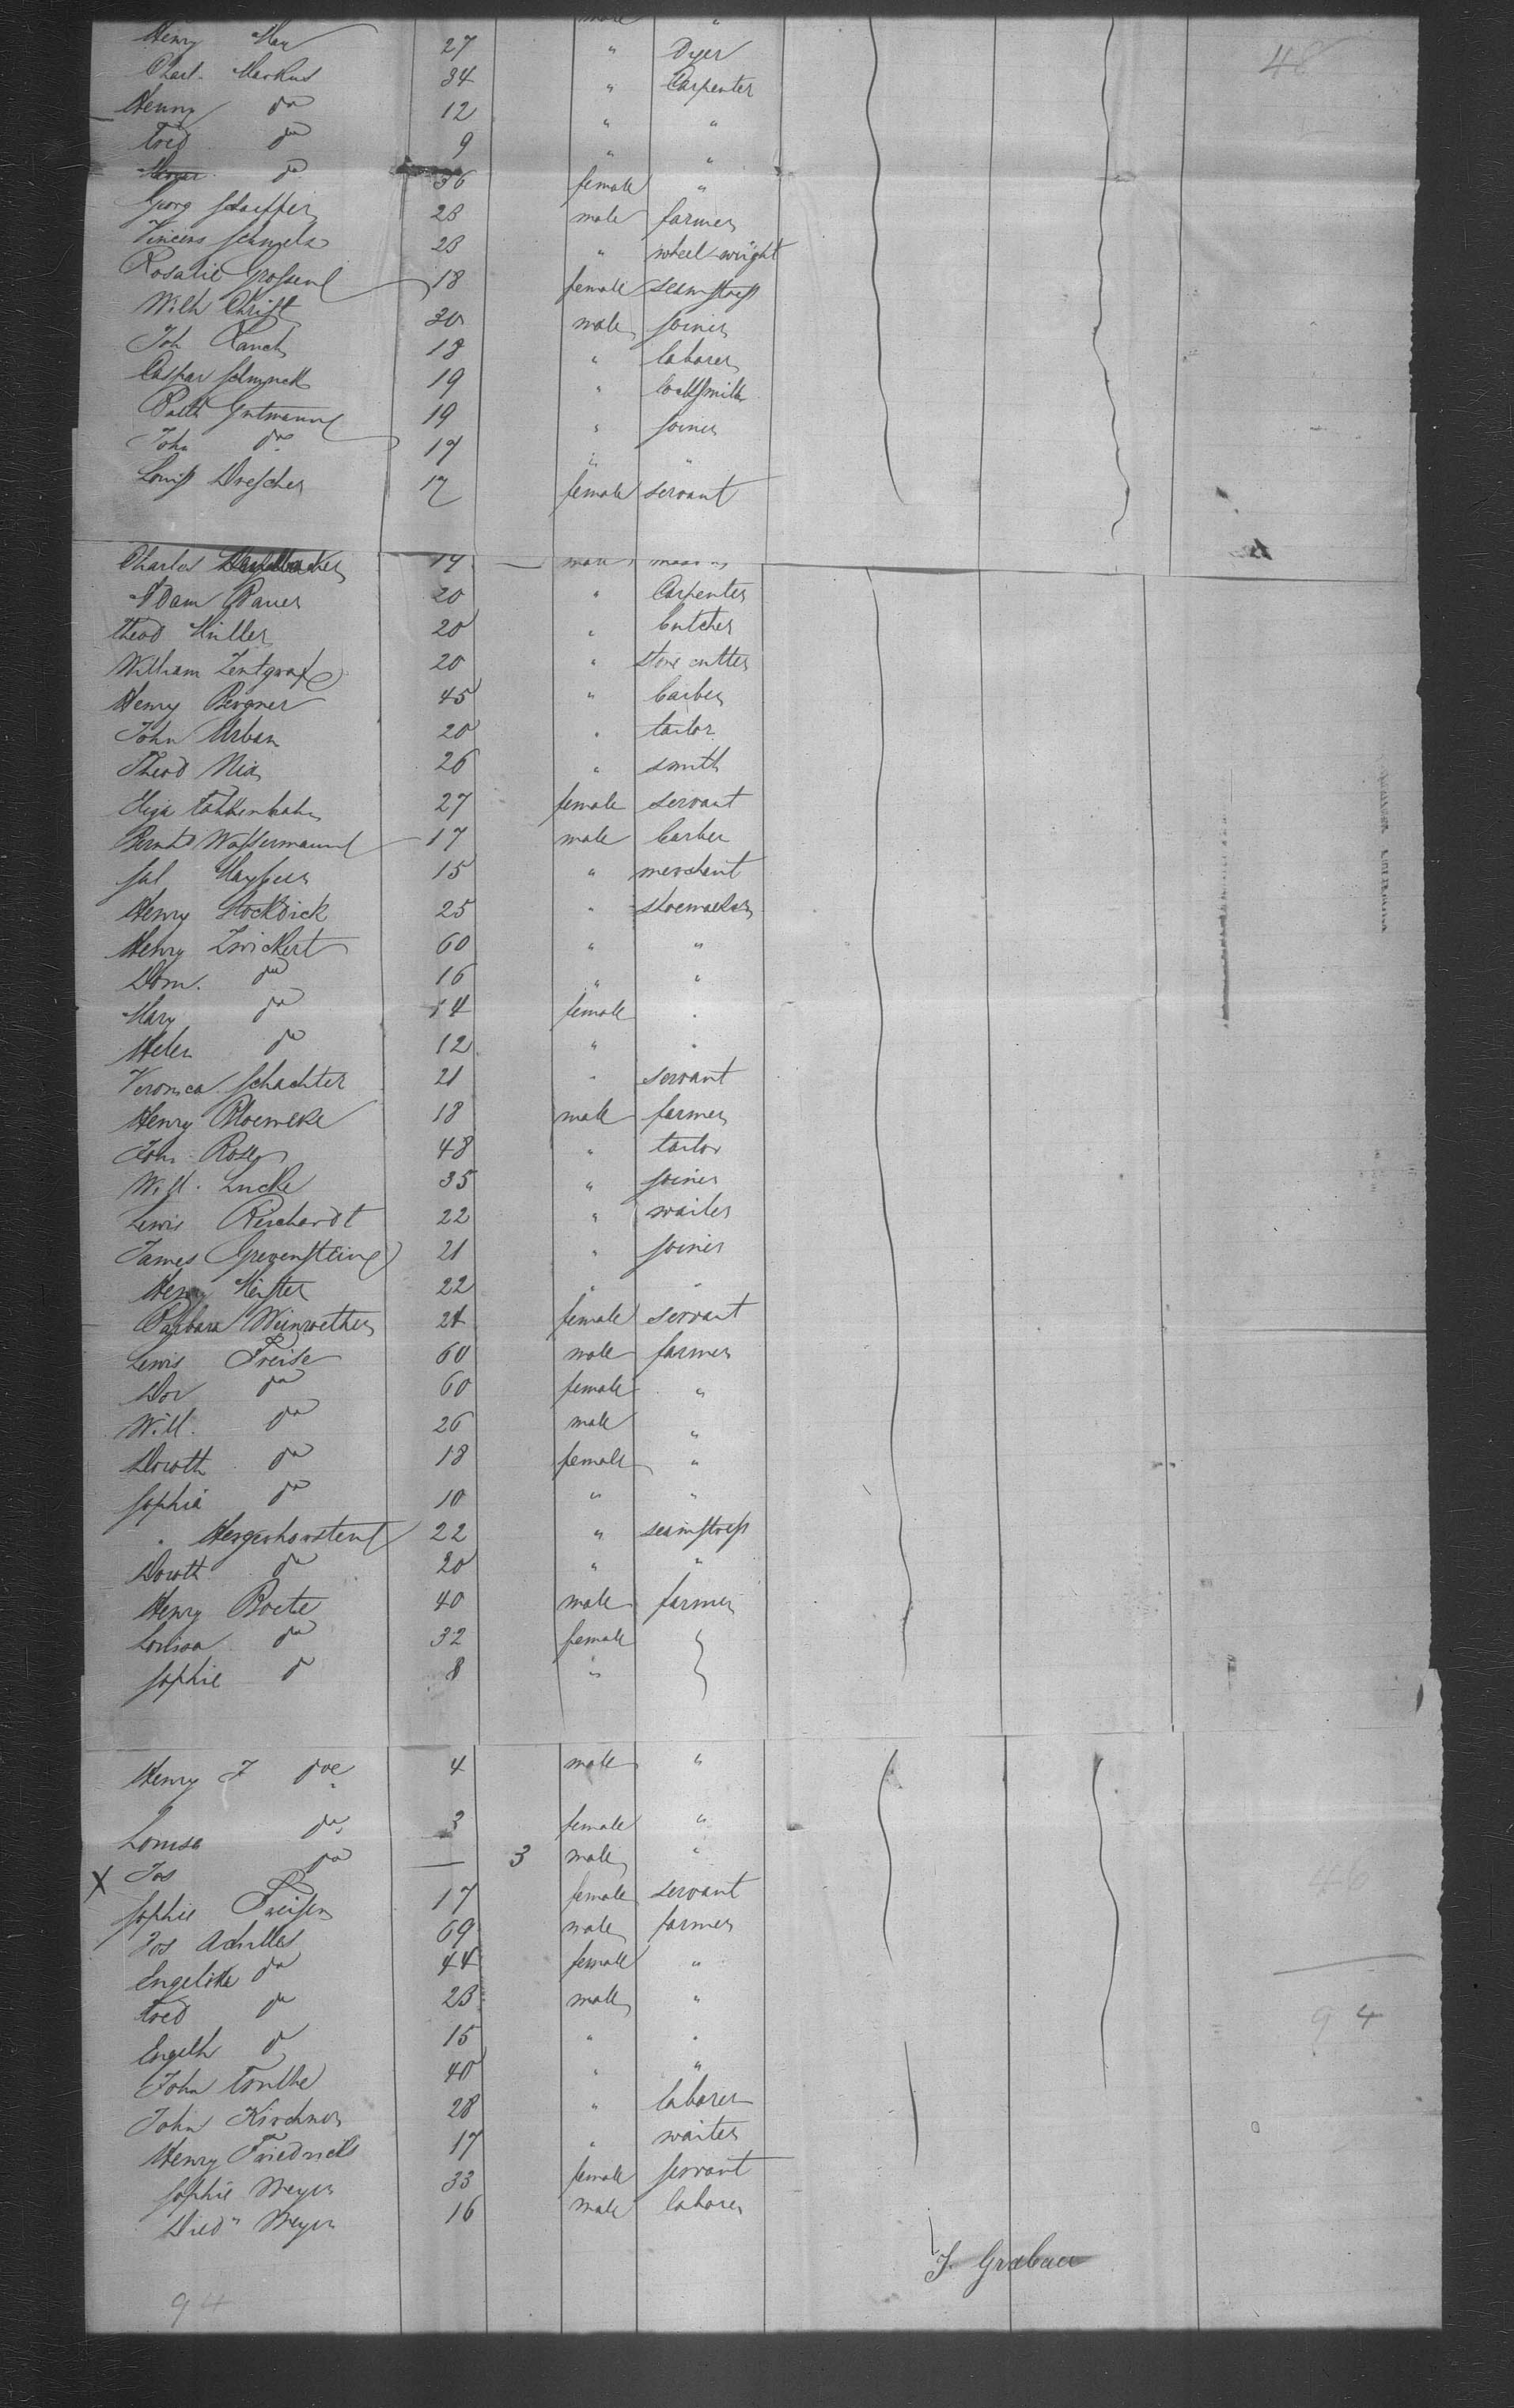 male "
Henry May 27 " Dyer 48
Charl. Markus 34 " Carpenter
Henny do 12 " "
Fred do 9 " "
do 36 female "
Georg Schaeffer 23 male farmer
Vincens 23 " wheelwright
Rosalie 18 female seamstress
Wilh Christ 30 male joiner
Joh Rauch 18 " laborer
Caspar 19 " locksmith
Balth Gutmann 19 " joiner
Joh do 17 " "
Louis Drescher 17 female servant
Charles 17 male mason
Adam Bauer 20 " Carpenter
Theod Müller 20 " butcher
William Zentgraf 20 " stone cutter
Henry Bergner 45 " barber
John Urban 20 " tailor
Theod Nix 26 " smith
Eliza 27 female servant
Bernhd Wassermann 17 male barber
Sal 15 " merchant
Henry Stockdick 25 " shoemaker
Henry Zwickert 60 " "
Dom. do 16 " "
Mary do 14 female "
Helen do 12 " "
Veronica Schachter 21 " servant
Henry Bloemeke 18 male farmer
48 " tailor
Will. Lucke 35 " joiner
Lewis Reichardt 22 " waiter
James Grevenstein 21 " joiner
Henry Meister 22 " "
Barbara 21 female servant
Lewis Freise 60 male farmer
Dor do 60 female "
Will. do 26 male "
Doroth do 18 female "
Sophia do 10 " "
" Hergenhorsten 22 " seamstress
Doroth do 20 " "
Henry Boete 40 male farmer
Louisa do 32 female
Sophie do 8 "
Henry F do 4 male "
Louisa do 3 female "
X Jos do — 3 male "
Sophie 17 female servant 46
Jos Achilles 69 male farmer
Engelika do 44 female "
Fred do 23 male " 94
Engelh do 15 " "
John 40 " "
John Kirchner 28 " laborer
Henry Friedrichs 17 " waiter
Sophie Meyer 33 female servant
Died" Meyer 16 male laborer
J. Grabau
94